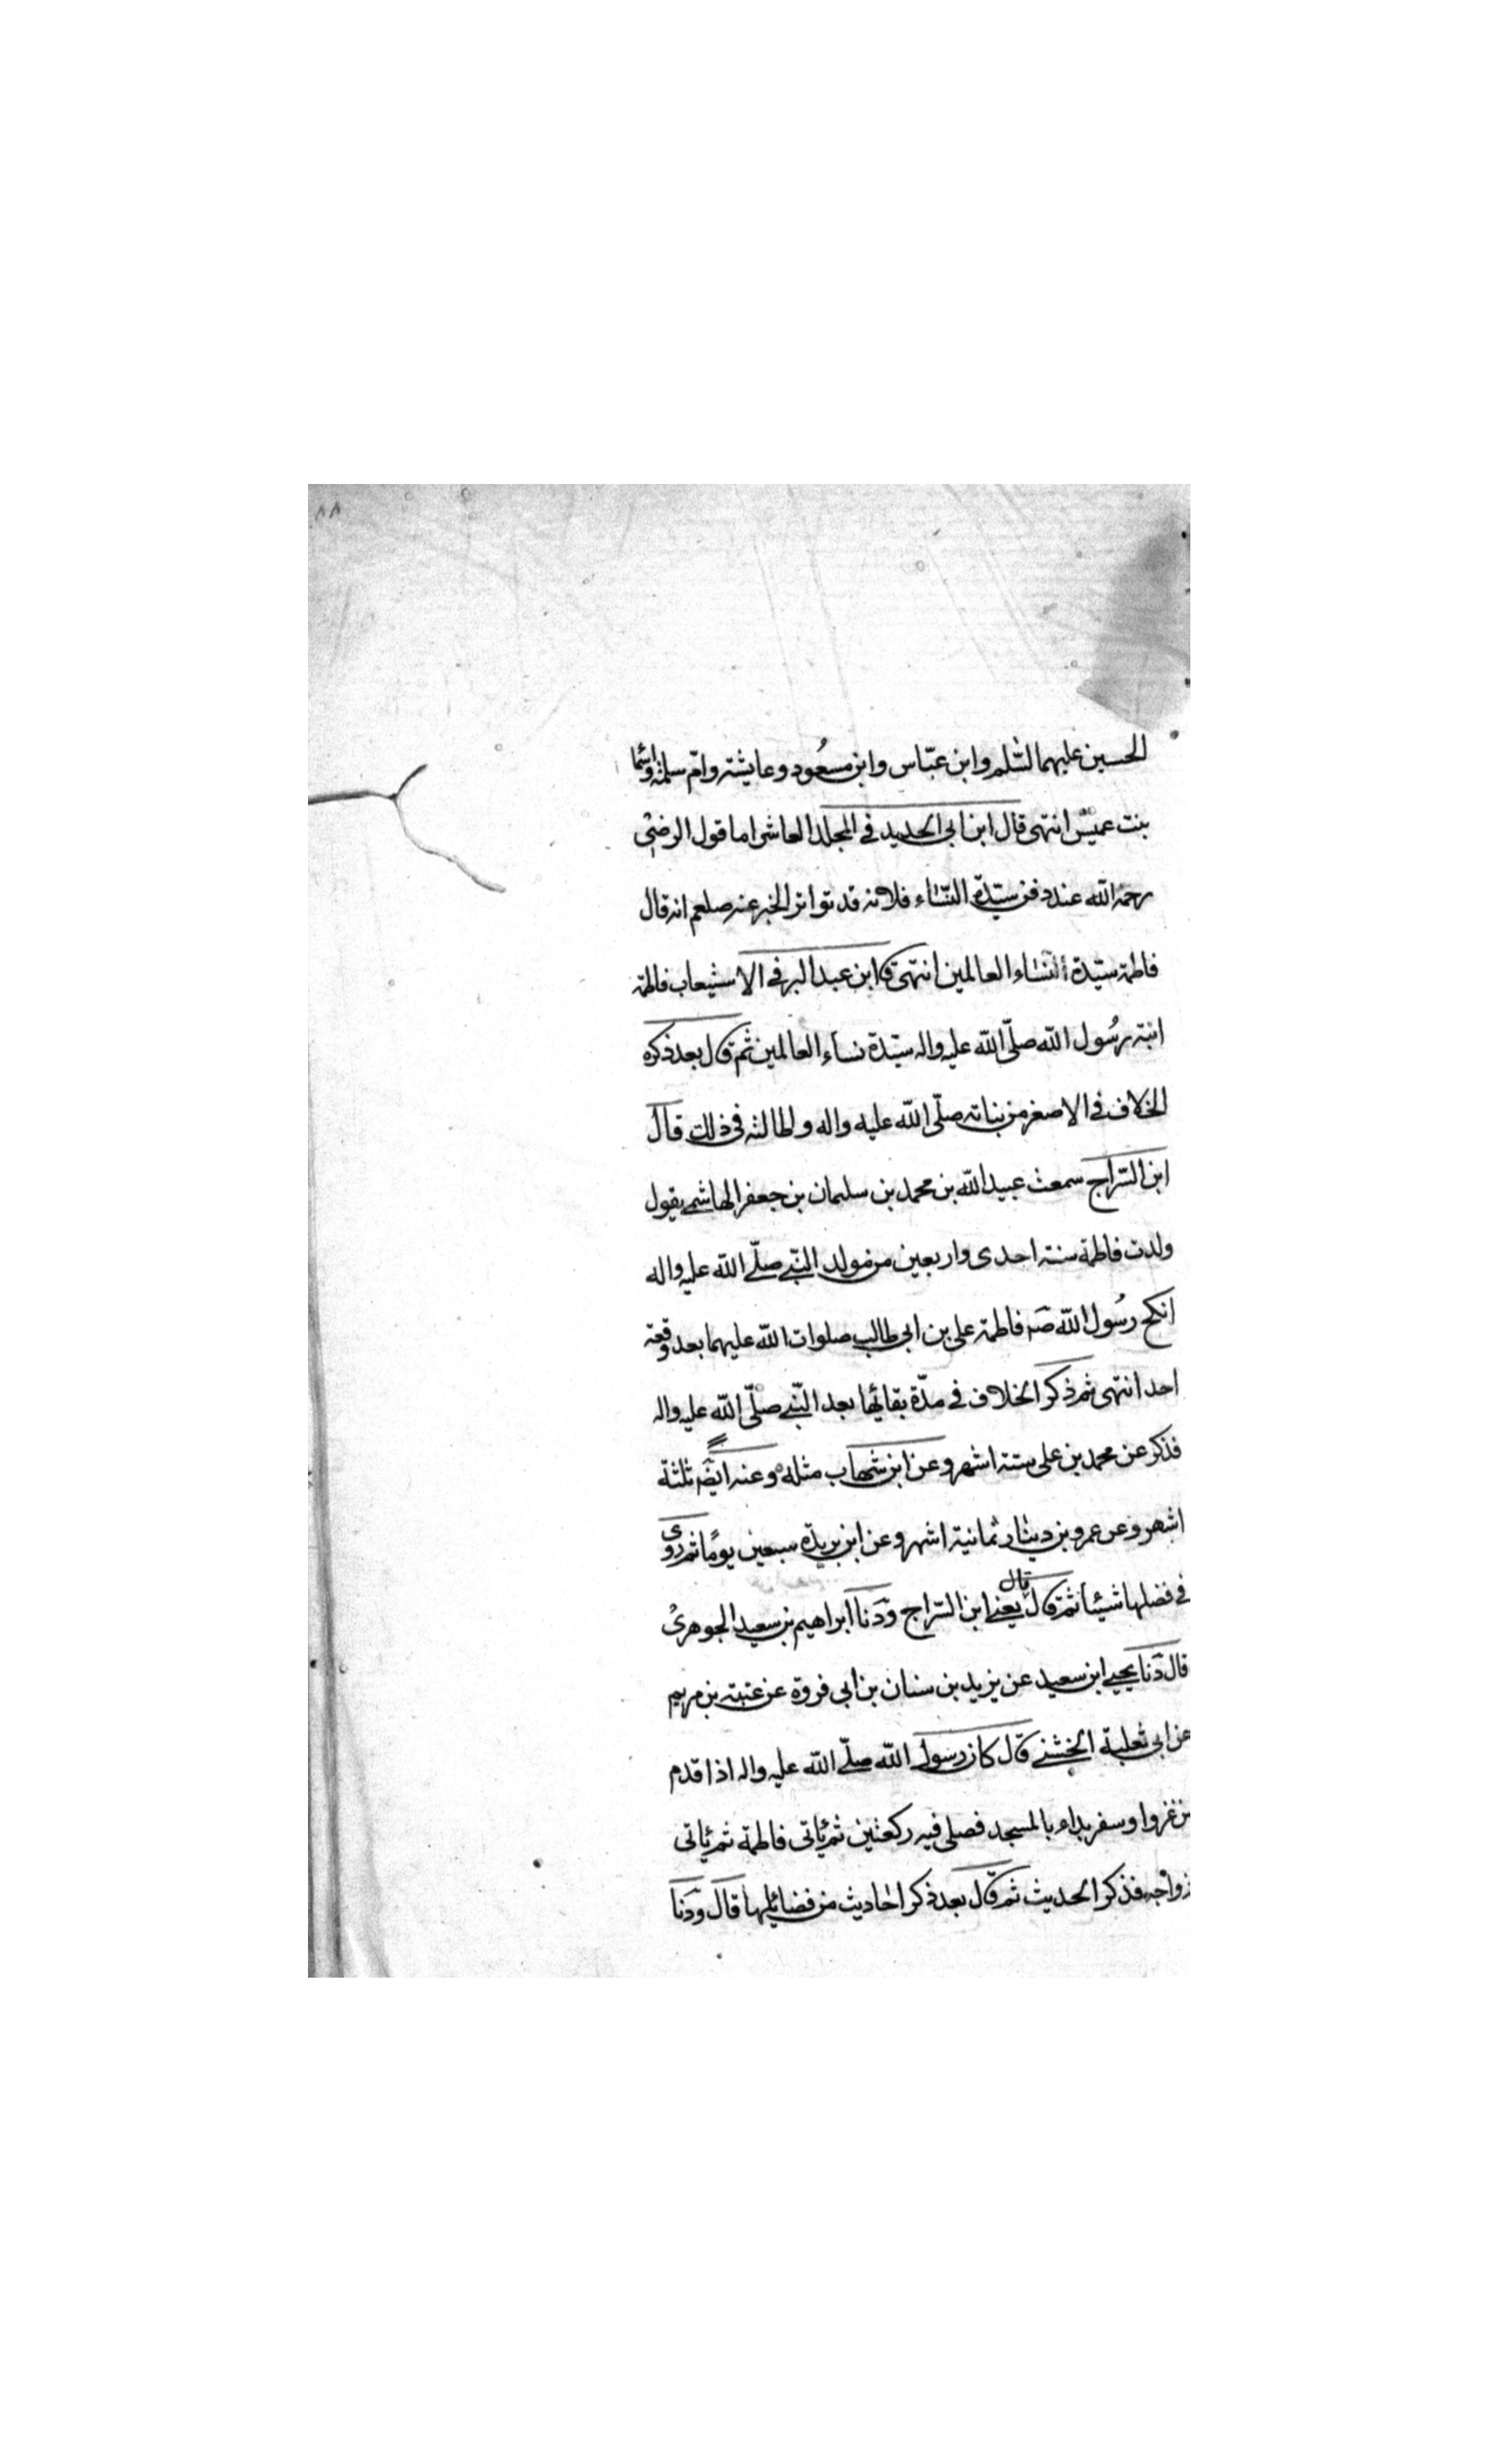 ٨٨
الحسين عليهما السّلم وابن عبّاس وابن مسعُود وعايشة وامّ سلمة واسما
بنت عميس انتهى قال ابن ابى الحديد فى المجلد العاشر اما قول الرضى
رحمة الله عند دفن سيّدة النّساء فلانه قد تواتر الخبر عنه صلعم انه قال
فاطمة سيّدة النّساء العالمين انتهى ق ابن عبد البر فى الاستيعاب فاطمة
ابنة رسُول الله صلّى الله عليه واله سيّدة نساء العالمين ثم قال بعد ذكره
الخلاف فى الاصغر من بناته صلّى الله عليه واله ولطالته فى ذلك قال
ابن السّراج سمعت عبيد الله بن محمد بن سليمان بن جعفر الهاشمى يقول
ولدت فاطمة سنة احدى واربعين من مولد النّبى صلّى الله عليه واله
انكح رسُول الله صه فاطمة على بن ابى طالب صلوات الله عليهما بعد وقعة
احد انتهى ثم ذكر الخلاف فى مدّة بقائها بعد النّبى صلّى الله عليه واله
فذكر عن محمد بن على ستة اشهر وعن ابن شهاب مثله وعنه ايضه ثلثة
اشهر وعن عمرو بن دينار ثمانية اشهر وعن ابن بريدة سبعين يومًا ثم روى
فى فضلها شيئا ثم قال قال يعنى ابن السّراج ودنا ابراهيم بن سعيد الجوهرى
قال دنا يحيى ابن سعيد عن يزيد بن سنان بن ابى فروة عن عتبة بن مريم
عن ابى ثعلبة الخشنى قال كان رسول الله صلّى الله عليه واله اذا قدم
من غزوا وسفر بداء بالمسجد فصلى فيه ركعتين ثم ياتى فاطمة ثم ياتى
ازواجه فذكر الحديث ثم قال بعد ذكر احاديث من فضائلها قال ودنا